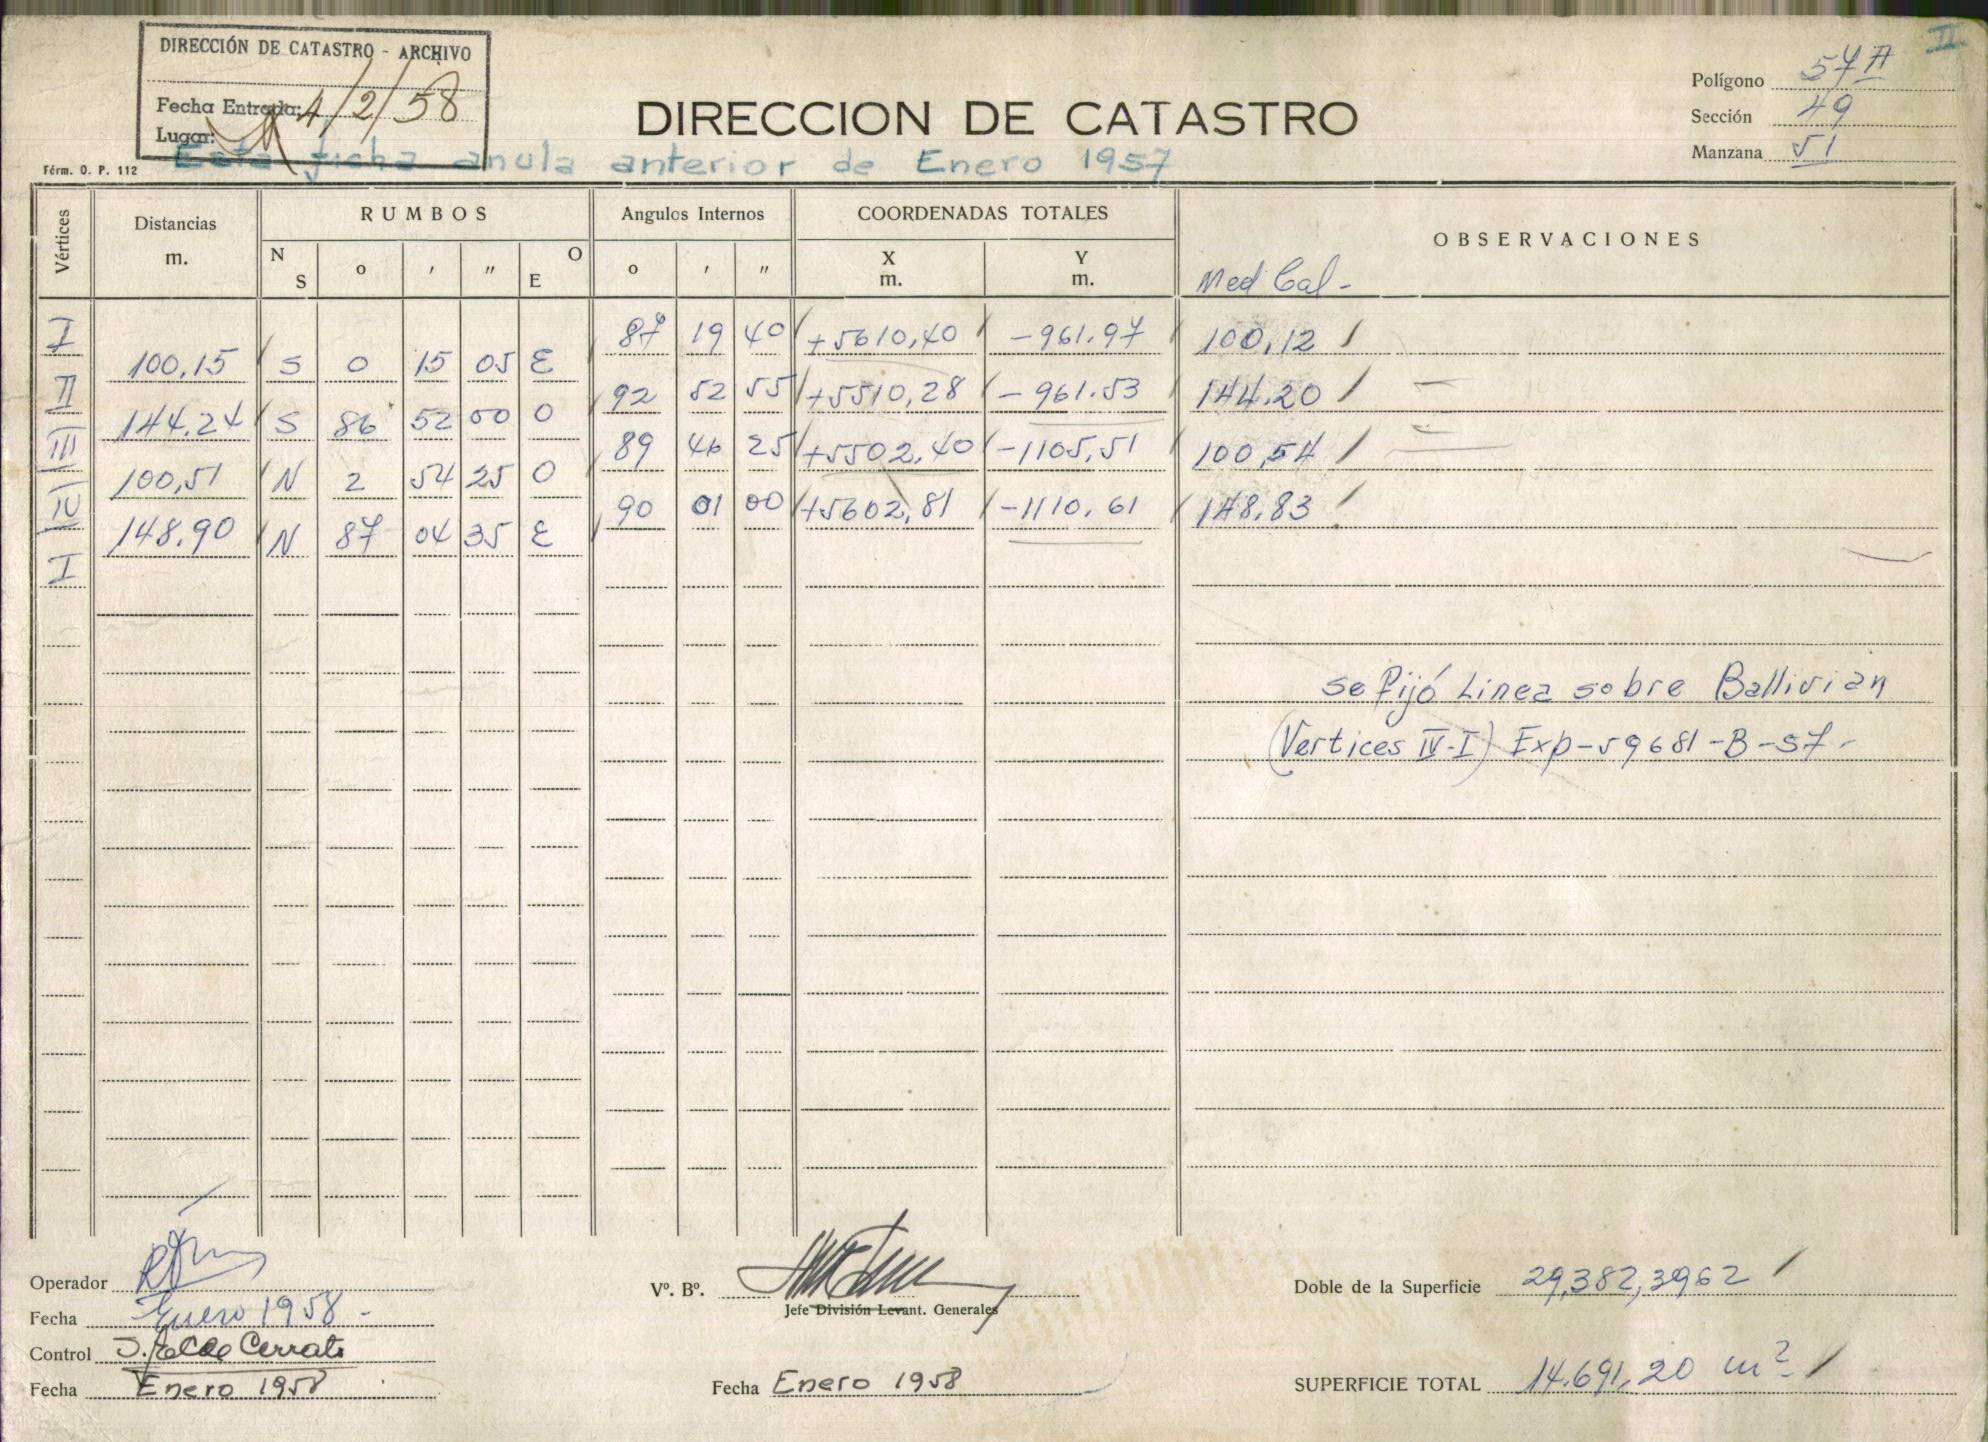 II
DIRECCIÓN DE CATASTRO - ARCHIVO
Fecha Entrada: 4/2/58
Lugar:
DIRECCION DE CATASTRO
Polígono 57A
Sección 49
Manzana 51
Esta ficha anula anterior de Enero 1957
Fórm. O. P. 112
Vértices Distancias m. RUMBOS Angulos Internos COORDENADAS TOTALES OBSERVACIONES
N S o ' " O E o ' " X m. Y m.
Med Cal-
I 87 19 40 +5610,40 -961.97 100,12
100,15 S 0 15 05 E
II 92 52 55 +5510,28 -961.53 144.20
144.24 S 86 52 00 O
III 89 46 25 +5502,40 -1105,51 100,54
100,51 N 2 54 25 O
IV 90 01 00 +5602,81 -1110,61 148,83
148.90 N 87 04 35 E
I
se fijó Linea sobre Ballivian
(Vertices IV-I) Exp-59681-B-57-
Operador
Fecha Enero 1958-
Control
Fecha Enero 1958
Vº. Bº.
Jefe División Levant. Generales
Fecha Enero 1958
Doble de la Superficie 29,382,3962
SUPERFICIE TOTAL 14.691,20 m²